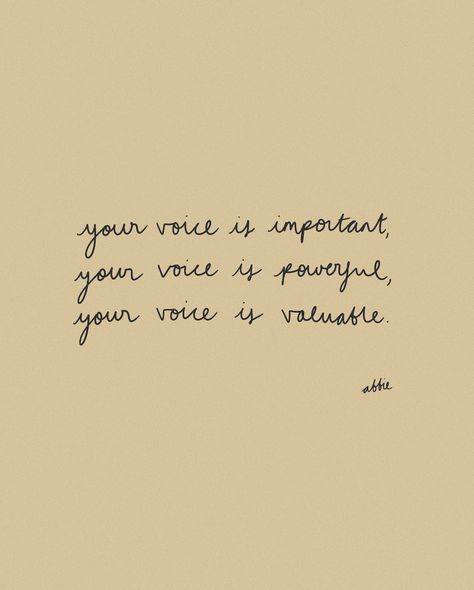 your voice is important,
your voice is powerful,
your voice is valuable.
abbie